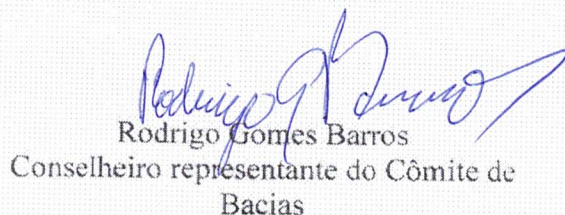 Rodrigo G Barros
Rodrigo Gomes Barros
Conselheiro representante do Cômite de
Bacias